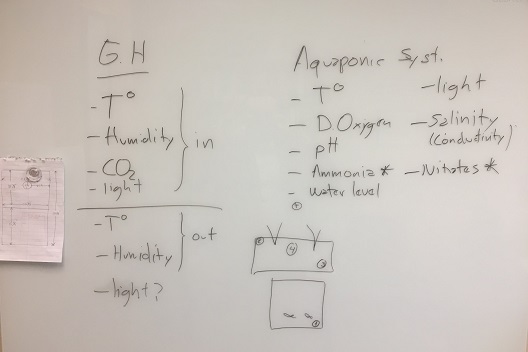 G.H
- T°
- Humidity
- CO2
- light
in
- T°
- Humidity
out
- light?
Aquaponic Syst.
- T°
- D Oxygen
- pH
- Ammonia *
- water level
- light
- Salinity
(Conductivity)
- Nitrates *
4